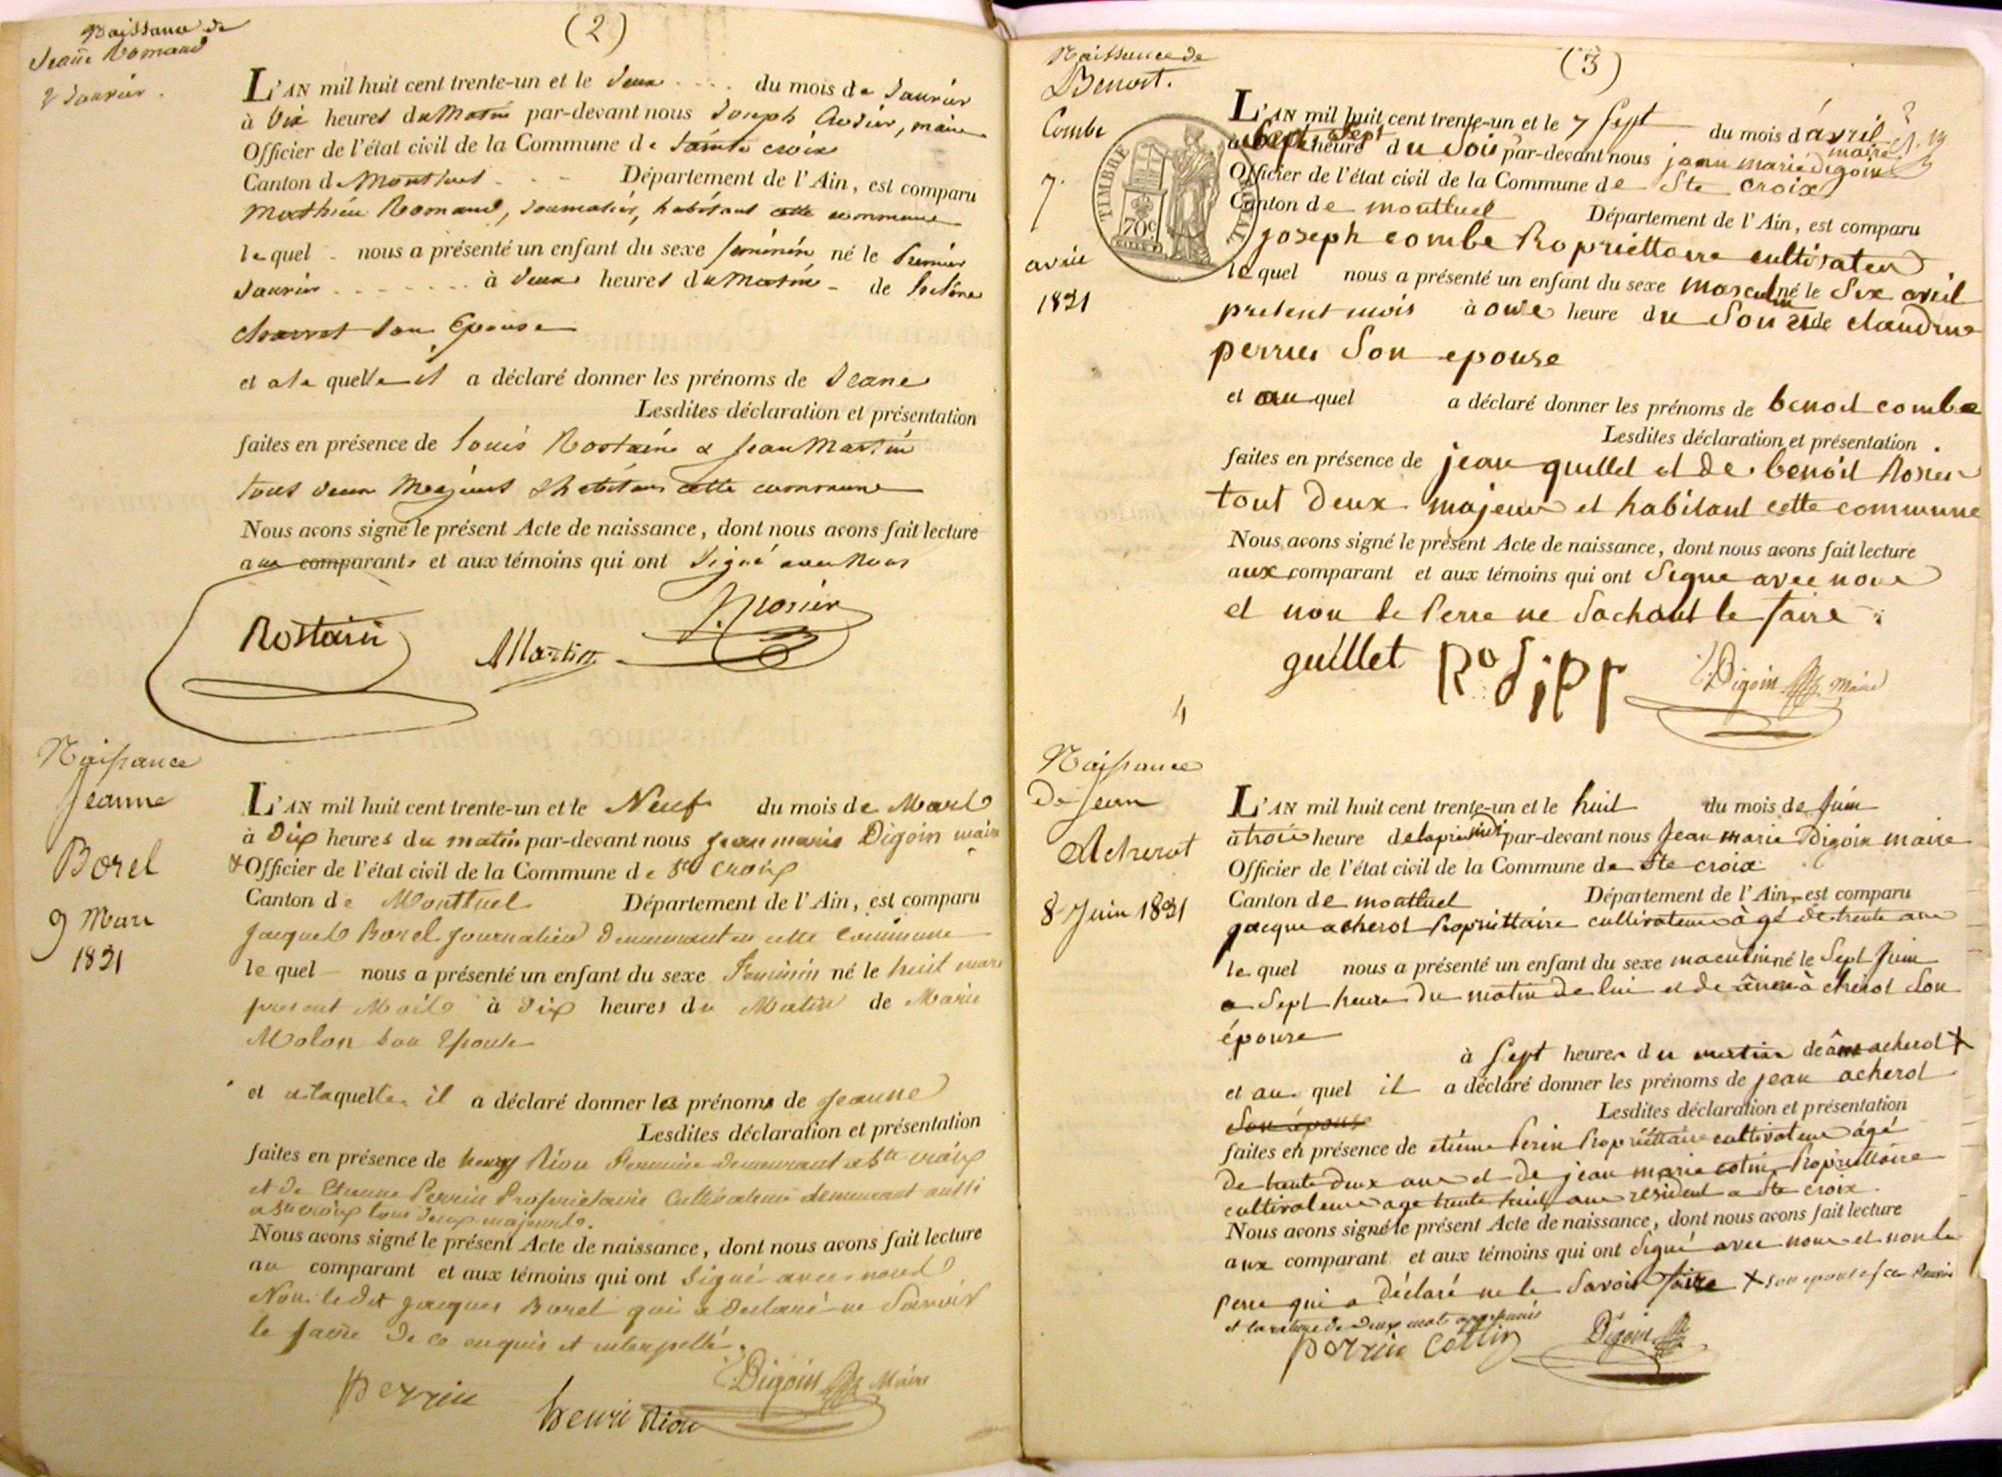 (2)
Naissance de
Jeanne Romand
2 Janvier.
L'AN mil huit cent trente-un et le deux du mois de Janvier
à dix heures du Matin par-devant nous Joseph maire
Officier de l'état civil de la Commune de Sainte croix
Canton de Montluel Département de l'Ain, est comparu
Mathieu Romand, Journalier, habitant cette commune
lequel nous a présenté un enfant du sexe féminin né le Premier
Janvier à deux heures du Matin de
charvet son Epouse
et a la quelle il a déclaré donner les prénoms de Jeane
Lesdites déclaration et présentation
faites en présence de Louis Rostain & Jean Martin
tous deux Majeurs & habitans cette commune
Nous avons signé le présent Acte de naissance, dont nous avons fait lecture
aux comparants et aux témoins qui ont signé avec Nous
Rostain Martin
Naissance
Jeanne
Borel
9 Mars
1831
L'AN mil huit cent trente-un et le Neuf du mois de Mars
à Dix heures du matin par-devant nous Jean marie Digoin maire
& Officier de l'état civil de la Commune de Ste Croix
Canton de Montluel Département de l'Ain, est comparu
Jacques Borel Journalier demeurant en cette Commune
lequel nous a présenté un enfant du sexe Feminin né le huit mars
present Mois à dix heures du Matin de Marie
Molon son Epouse
et a laquelle il a déclaré donner les prénoms de Jeanne
Lesdites déclaration et présentation
faites en présence de henry Riou demeurant a Ste croix
et de Etienne Perrin Proprietaire Cultivateur demeurant aussi
a Ste croix tous deux majeurs.
Nous avons signé le présent Acte de naissance, dont nous avons fait lecture
au comparant et aux témoins qui ont Signé avec nous
Non le dit Jacques Borel qui a declaré ne Savoir
le faire de ce enquis et interpellé.
Perrin henri Riou Digoin Maire
(3)
Naissance de
Benoit.
Combe
7.
avril
1831
TIMBRE ROYAL
70c
L'AN mil huit cent trente-un et le 7 Sept du mois d'avril
heures du Soir par-devant nous jean marie Digoin maire
Officier de l'état civil de la Commune de Ste croix
Canton de montluel Département de l'Ain, est comparu
joseph combe Propriettaire cultivateu
lequel nous a présenté un enfant du sexe masculin né le Six avril
present mois à onze heure du Soir de claudine
perrier Son epouse
et au quel a déclaré donner les prénoms de benoit combe
Lesdites déclaration et présentation
faites en présence de jean guillet et de benoit Rosier
tout Deux majeur et habitant cette commune
Nous avons signé le présent Acte de naissance, dont nous avons fait lecture
aux comparant et aux témoins qui ont Signe avec nous
et non le Perre ne Sachant le faire
guillet Digoin Maire
4
Naissance
De Jean
Acherot
8 Juin 1831
L'AN mil huit cent trente-un et le huit du mois de Juin
à trois heure de lapremidi par-devant nous Jean marie Digoin maire
Officier de l'état civil de la Commune de Ste croix
Canton de montluel Département de l'Ain, est comparu
jacque acherot Propriettaire cultivateur âgé de trente ans
lequel nous a présenté un enfant du sexe maculin né le Sept Juin
a Sept heure Du matin de lui et de acherot Son
épouse
à Sept heures du matin de acherot +
et au quel il a déclaré donner les prénoms de jean acherot
Son épouse
Lesdites déclaration et présentation
faites en présence de etienne Perin Propriéttaire cultivateur âgé
De trente deux ans et de jean marie cotin Propriettaire
cultivateur age trente huit ans resident a Ste croix
Nous avons signé le présent Acte de naissance, dont nous avons fait lecture
aux comparant et aux témoins qui ont Signé avec nous et non le
Perre qui a Déclaré ne le Savoir faire +
et la rature de deux mots approuvés
perrin Cottin Digoin